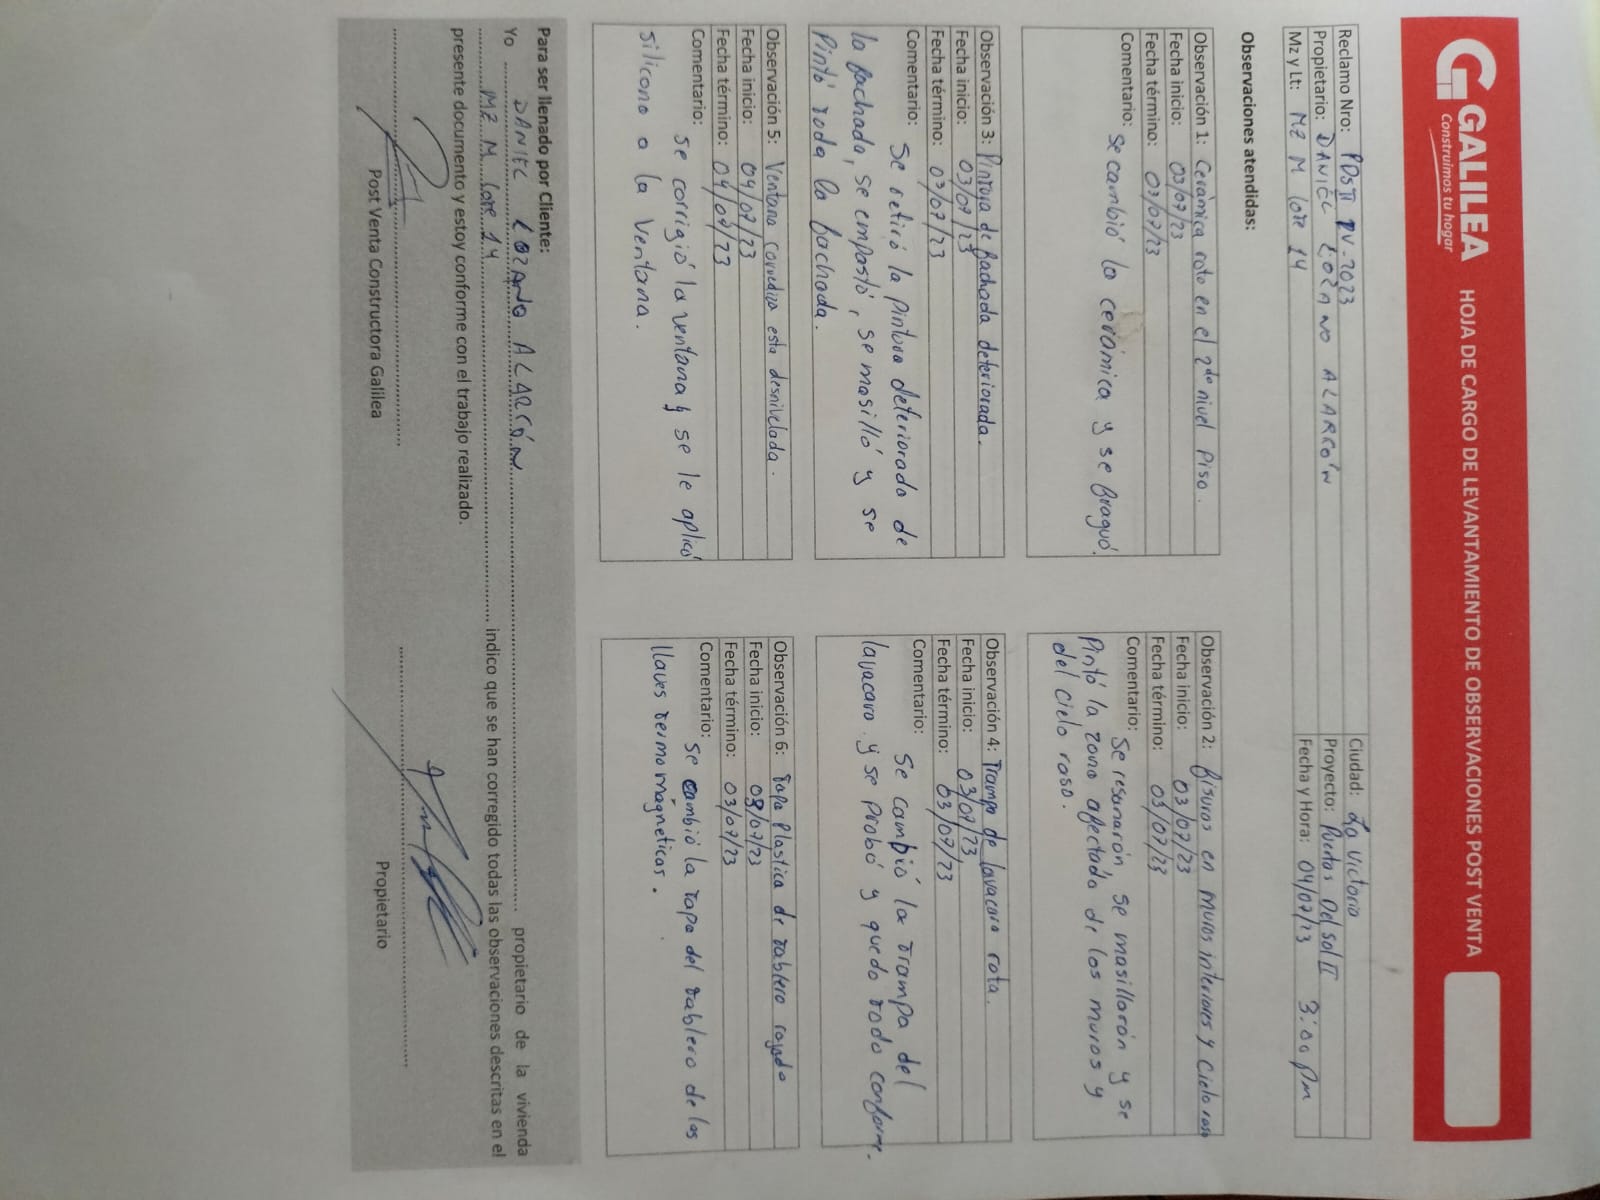 GALILEA
Construimos tu hogar
HOJA DE CARGO DE LEVANTAMIENTO DE OBSERVACIONES POST VENTA
Reclamo Nro: PDSII PV-2023
Propietario: DANIEL LOZANO ALARCÓN
Mz y Lt: MZ M lote 14
Ciudad: La Victoria
Proyecto: Puertas Del sol II
Fecha y Hora: 04/07/23 3:00 pm
Observaciones atendidas:
Observación 1: Cerámica rota en el 2do nivel Piso.
Fecha inicio: 03/07/23
Fecha término: 03/07/23
Comentario: Se cambió la cerámica y se fraguó.
Observación 2: fisuras en muros interiores y Cielo raso
Fecha inicio: 03/07/23
Fecha término: 03/07/23
Comentario: Se resanarón, se masillarón y se
Pintó la zona afectada de los muros y
del cielo raso.
Observación 3: Pintura de fachada deteriorada.
Fecha inicio: 03/07/23
Fecha término: 03/07/23
Comentario: Se retiró la pintura deteriorada de
la fachada, se empastó, se masilló y se
Pintó toda la fachada.
Observación 4: Trampa de lavacara rota.
Fecha inicio: 03/07/23
Fecha término: 03/07/23
Comentario: Se cambió la trampa del
lavacara y se probó y quedo todo conforme.
Observación 5: Ventana corrediza esta desnivelada.
Fecha inicio: 04/07/23
Fecha término: 04/07/23
Comentario: Se corrigió la ventana y se le aplicó
silicona a la ventana.
Observación 6: Tapa Plastica de tablero rajado
Fecha inicio: 03/07/23
Fecha término: 03/07/23
Comentario: Se cambió la tapa del tablero de las
llaves termomagnéticas.
Para ser llenado por Cliente:
Yo DANIEL LOZANO ALARCÓN propietario de la vivienda
MZ M lote 14 indico que se han corregido todas las observaciones descritas en el
presente documento y estoy conforme con el trabajo realizado.
Post Venta Constructora Galilea
Propietario